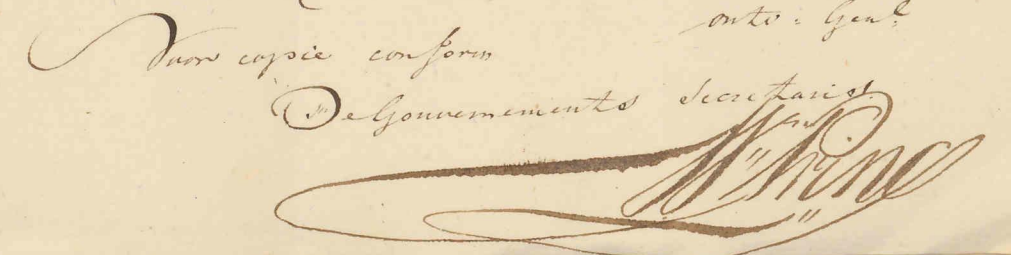 onts: Genl:
Voor copie conform
De Gouvernements Secretaris